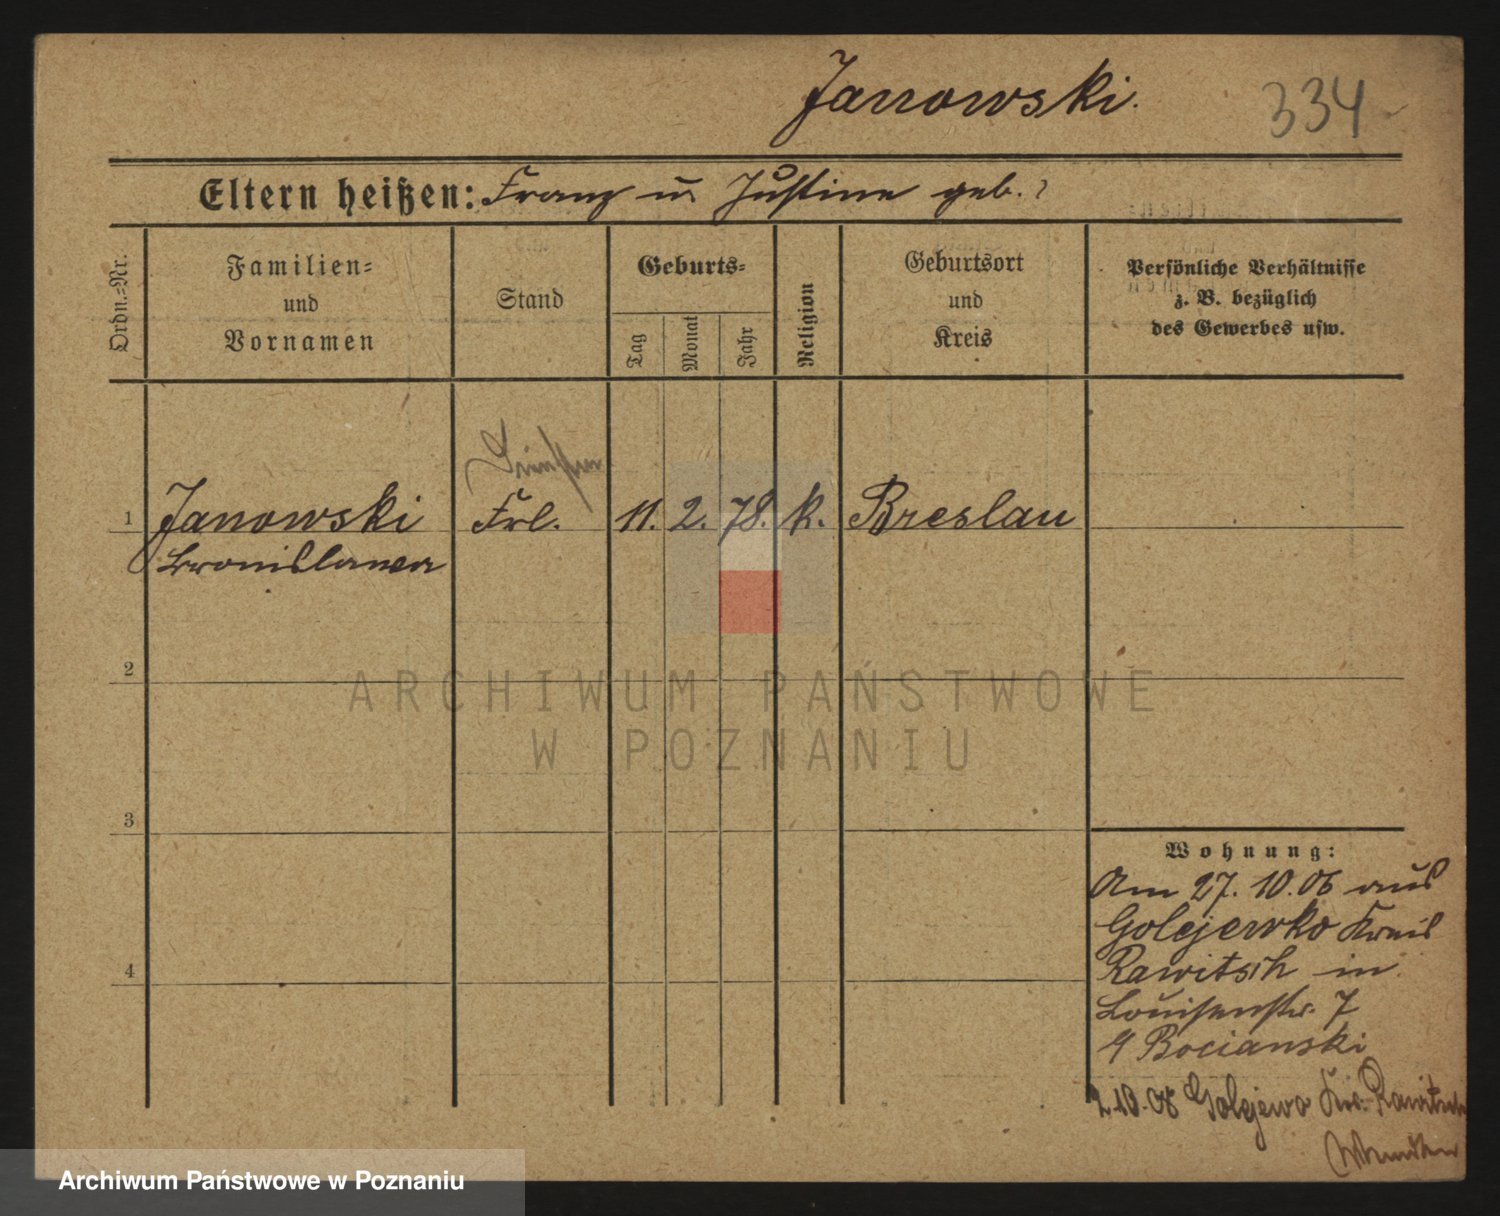 Janowski.
334
Eltern heißen: Franz u. Justine geb. ?
Ordn.-Nr.
Familien-
und
Vornamen
Stand
Geburts-
Tag
Monat
Jahr
Religion
Geburtsort
und
Kreis
Persönliche Verhältnisse
z. B. bezüglich
des Gewerbes usw.
1 Janowski Frl. 11. 2. 78. k. Breslau
Bronislawa
2
3
4
Wohnung:
Am 27. 10. 06 aus
Golejewko Kreis
Rawitsch in
Louisenstr. 7
Bocianski
2.10.08 Golejewo Krs. Rawitsch
ARCHIWUM PAŃSTWOWE
W POZNANIU
Archiwum Państwowe w Poznaniu